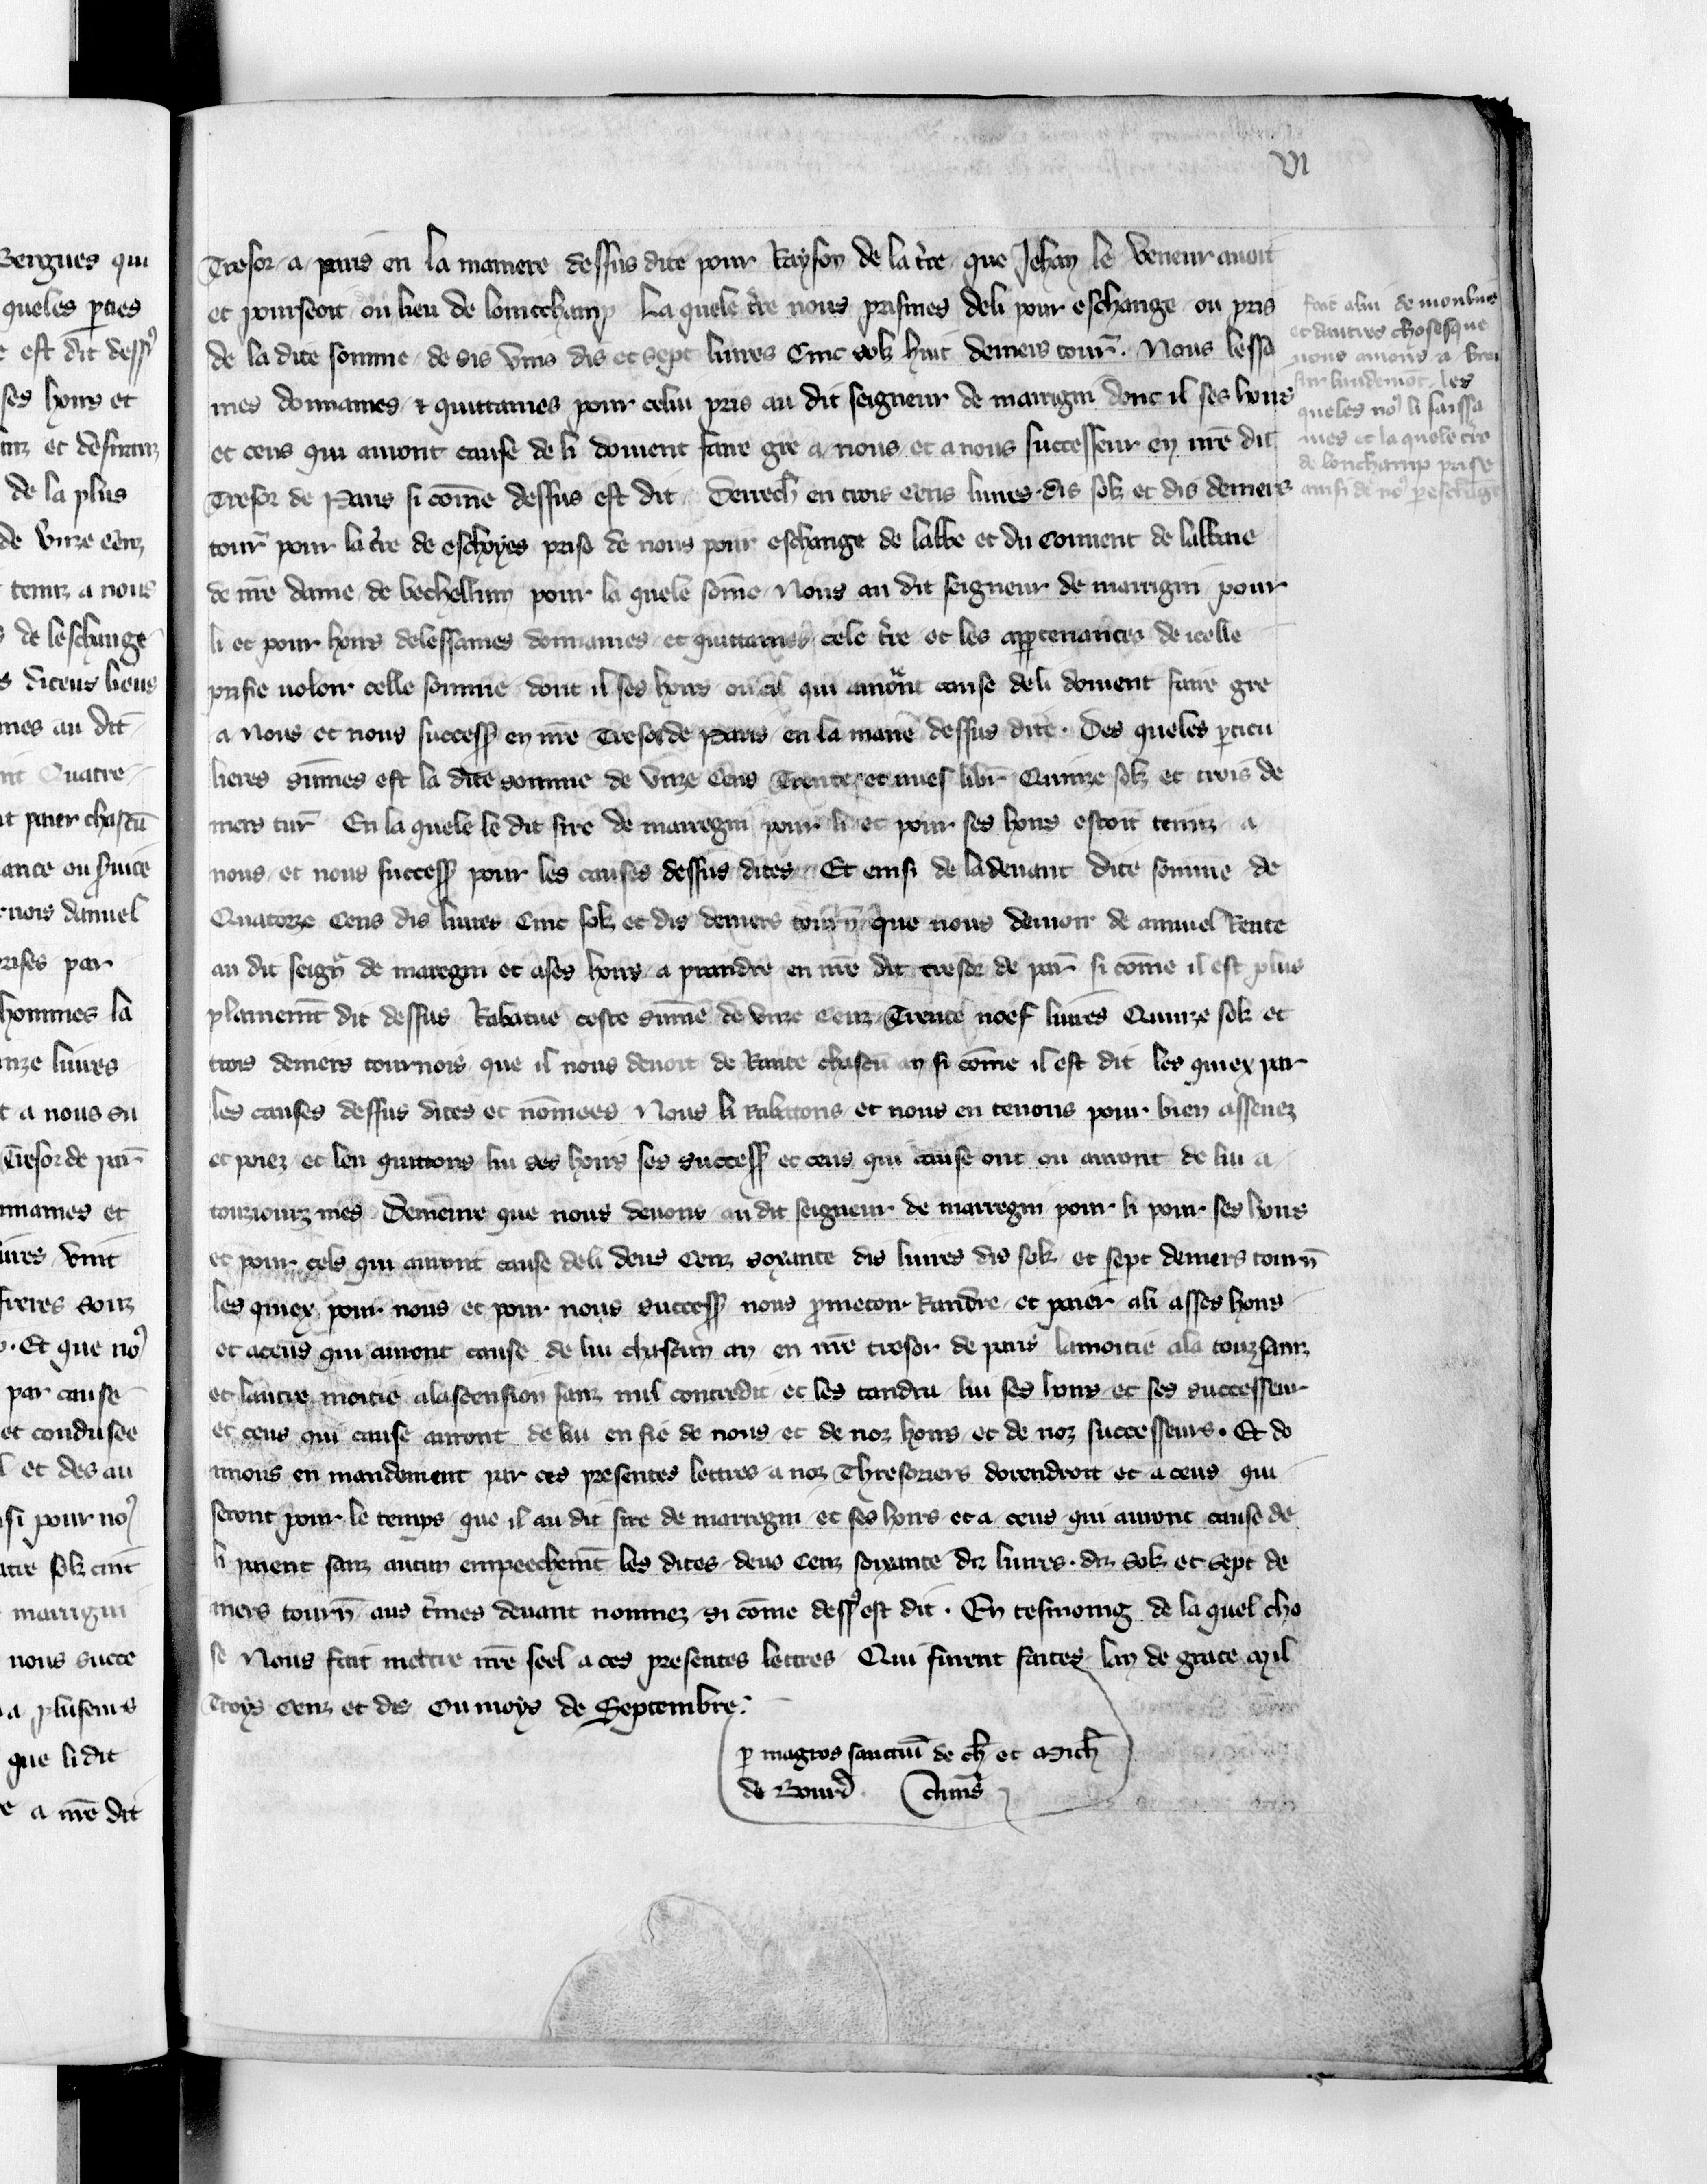 VI
Tresor a paris en la maniere dessus dite pour Rayson de la t̾re que Jehan le Veneur auoit
et pourseoit ou lieu de lonccham̄p La quele t̾re nous prismes de li pour eschange ou pris
de la dite somme de sis vins dis et sept liures Cinc solz huit deniers tour̄. Nous lessa
mes donnames ⁊ quittames pour celui pris au dit seigneur de marrigni donc il ses hoirs
et ceus qui auront cause de li doiuent faire gre a nous et a nous successeur en nr̄e dit
Tresor de Paris si com̄e dessus est dit Derrech̄ en trois cens liures dis solz et dis deniers
tour̄ pour la t̾re de eschoyes prise de nous pour eschange de labbe et du conuent de labbaie
de nr̄e dame de bechellum pour la quele som̄e Nous au dit seigneur de marrigni pour
li et pour hoirs delessames donnames et quittames cele t̾re et les appartenances de icelle
prisie ualoir celle somme dont il ses hoirs ou cil qui auront cause de li doiuent faire gre
a Nous et nous success̄ en nr̄e Tresor de paris en la manie̾ dessus dite. Des queles p̱ticu
lieres sum̄es est la dite somme de vnze Cens Trente et nuef libr̄ Quinze solz et trois de
niers tur̄ En la quele le dit sire de marregni pour li et pour ses hoirs estoit tenuz a
nous et nous success̄ pour les causes dessus dites Et einsi de la deuant dite somme de
Quatorze Cens dis liures Cinc solz et dis deniers tourn̄ que nous deuion̾ de annuel Rente
au dit seign̾ de maregni et a ses hoirs a prandre en nr̄e dit tresor de par̄ si com̄e il est plus
plainem̄t dit dessus Rabatue ceste sum̄e de vnze Cenz Trente noef liures Quinze solz et
trois deniers tournois que il nous deuoit de Rante chascū an si com̄e il est dit les quiex par
les causes dessus dites et nom̄ees Nous li Rabatons et nous en tenons pour bien assenez
et poiez et len quittons lui ses hoirs ses success̄ et ceus qui cause ont ou auront de lui a
touziourz mes Demeure que nous deuons au dit seigneur de marregni pour li pour ses hoirs
et pour cels qui auront cause de li deus Cenz soyxante dis liures dis solz et sept deniers tourn̄
les quiex pour nous et pour nous success̄ nous prometon̾ Randre et paier a li a ses hoirs
et a ceus qui auront cause de lui chascun an en nr̄e tresor de paris la moitie a la touzsainz
et lautre moitie a lascension sanz nul contredit et les tandra lui ses hoirs et ses successeur
et ceus qui cause auront de lui en fie de nous et de noz hoirs et de noz successeurs. Et do
nnons en mandement par ces presentes lettres a noz Thresoriers dorendroit et a ceus qui
seront pour le temps que il au dit sire de marregni et ses hoirs et a ceus qui auront cause de
li paient sanz aucun empeechem̄t les dites deus Cenz soixante diz liures. diz solz et sept de
niers tourn̄ aus t̾mes deuant nommez si com̄e dess̾ est dit. En tesmoing de la quel cho
se Nous fait mettre nr̄e seel a ces presentes lettres Qui furent faites lan de grace Mil
Troys Cenz et dis Ou moys de Septembre.
p̱ magros sanctiū de ch̄ et Mich̄
de Bourd̾
fait a lui de
et dautres choses que
nous auions a
les
queles no⁹ li laissa
mes et la quele t̾re
de lonchamp prise
ausi de no⁹ p̱ eschāge
Bergues qui
queles p̱ties
est dit dess̾
ses hoirs et
et
de la plus
de vnze cenz
tenuz a nous
de leschange
diteus lieus
mes au dit
Quatre
paier chascū
ance ou s̾uice
rnois danuel
rises par
hommes la
nze liures
a nous su
Tresor de par̄
nnames et
ures vint
freres souz
Et que no⁹
par cause
et condusee
et des au
si pour no⁹
tre solz cint
marrigni
nous succe
a pluseurs
que li dit
a nr̄e dit